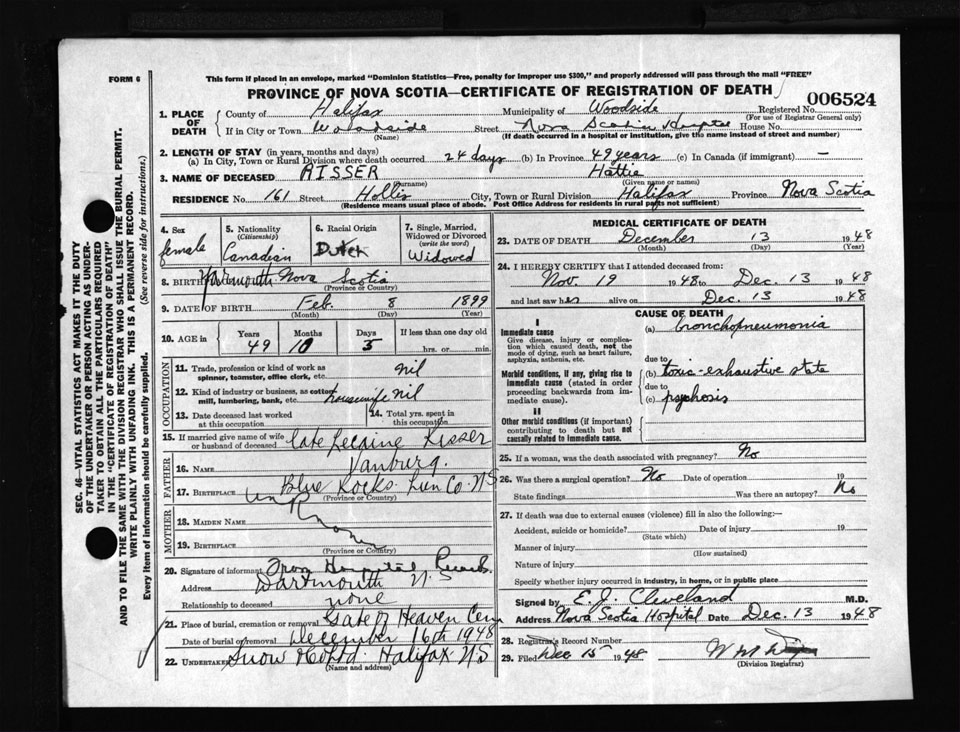 FORM 6
This form if placed in an envelope, marked "Dominion Statistics—Free, penalty for improper use $300," and properly addressed will pass through the mail "FREE"
PROVINCE OF NOVA SCOTIA—CERTIFICATE OF REGISTRATION OF DEATH
006524
1. PLACE OF DEATH
County of Halifax Municipality of Woodside Registered No.
(For use of Registrar General only)
If in City or Town Woodside Street Nova Scotia Hospital House No.
(Name) (If death occurred in a hospital or institution, give the name instead of street and number)
2. LENGTH OF STAY (in years, months and days)
(a) In City, Town or Rural Division where death occurred 24 days (b) In Province 49 years (c) In Canada (if immigrant) —
3. NAME OF DECEASED RISSER Hattie
(Surname) (Given name or names)
RESIDENCE No. 161 Street Hollis City, Town or Rural Division Halifax Province Nova Scotia
(Residence means usual place of abode. Post Office Address for residents in rural parts not sufficient)
4. Sex female
5. Nationality (Citizenship) Canadian
6. Racial Origin Dutch
7. Single, Married, Widowed or Divorced (write the word) Widowed
8. BIRTH Yarmouth Nova Scotia
(Province or Country)
9. DATE OF BIRTH Feb. 8 1899
(Month) (Day) (Year)
10. AGE in Years 49 Months 10 Days 5 If less than one day old hrs. or min.
OCCUPATION
11. Trade, profession or kind of work as spinner, teamster, office clerk, etc. nil
12. Kind of industry or business, as cotton mill, lumbering, bank, etc. housewife nil
13. Date deceased last worked at this occupation
14. Total yrs. spent in this occupation
15. If married give name of wife or husband of deceased late Risser
FATHER
16. NAME
17. BIRTHPLACE Blue Rocks Lun Co. N.S
(Province or Country)
MOTHER
18. MAIDEN NAME Unknown
19. BIRTHPLACE
(Province or Country)
20. Signature of informant From Hospital Records
Address Dartmouth N.S
Relationship to deceased none
21. Place of burial, cremation or removal Gate of Heaven Cem
Date of burial or removal December 16th 1948
22. Undertaker Snow & Co Ltd. Halifax N.S
(Name and address)
MEDICAL CERTIFICATE OF DEATH
23. DATE OF DEATH December 13 1948
(Month) (Day) (Year)
24. I HEREBY CERTIFY that I attended deceased from:
Nov. 19 1948 to Dec. 13 1948
and last saw her alive on Dec. 13 1948
CAUSE OF DEATH
I
Immediate cause
Give disease, injury or complication which caused death, not the mode of dying, such as heart failure, asphyxia, asthenia, etc.
(a) bronchopneumonia
due to
Morbid conditions, if any, giving rise to immediate cause (stated in order proceeding backwards from immediate cause).
(b) toxic-exhaustive state
due to
(c) psychosis
II
Other morbid conditions (if important) contributing to death but not causally related to immediate cause.
25. If a woman, was the death associated with pregnancy? No
26. Was there a surgical operation? No Date of operation 19
State findings Was there an autopsy? No
27. If death was due to external causes (violence) fill in also the following:—
Accident, suicide or homicide? Date of injury 19
(State which)
Manner of injury
(How sustained)
Nature of injury
Specify whether injury occurred in industry, in home, or in public place
Signed by E. J. Cleveland M.D.
Address Nova Scotia Hospital Date Dec. 13 1948
28. Registrar's Record Number
29. Filed Dec 15 1948
(Division Registrar)
SEC. 46—VITAL STATISTICS ACT MAKES IT THE DUTY OF THE UNDERTAKER OR PERSON ACTING AS UNDERTAKER TO OBTAIN ALL THE PARTICULARS REQUIRED IN THE "CERTIFICATE OF REGISTRATION OF DEATH" AND TO FILE THE SAME WITH THE DIVISION REGISTRAR WHO SHALL ISSUE THE BURIAL PERMIT.
WRITE PLAINLY WITH UNFADING INK. THIS IS A PERMANENT RECORD.
Every item of information should be carefully supplied. (See reverse side for instructions.)